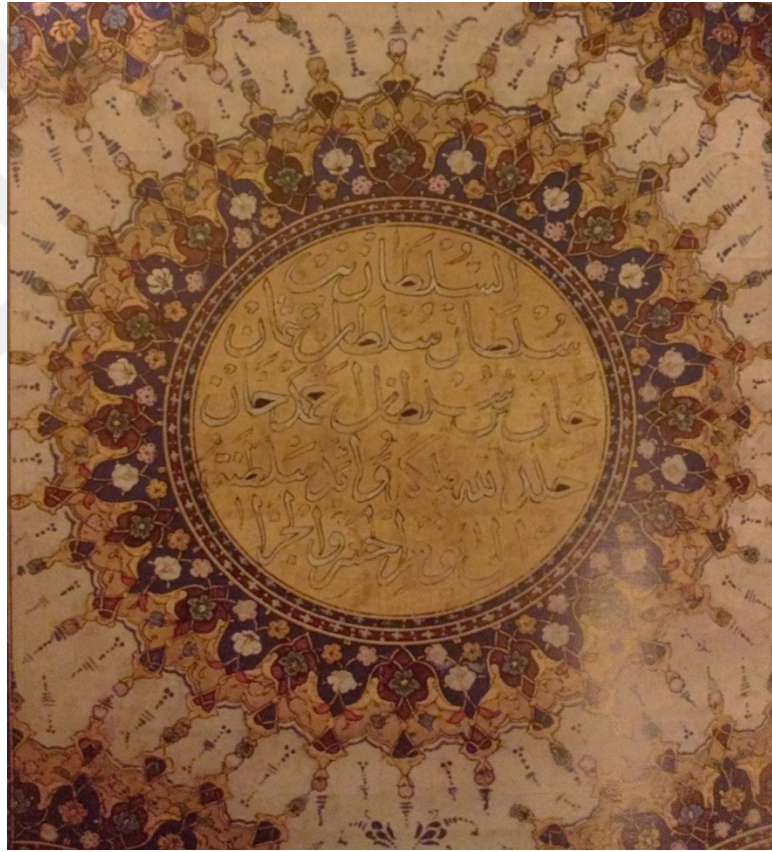 السلطان بن
سلطان سلطان عثمان
خان بن سلطان احمد خان
خلد الله ملكه وابد سلطنته
الى يوم الحشر والجزا